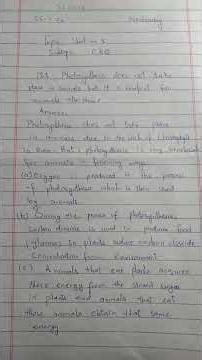 Science
Wednesday
Topic Unit - 3
Subtopic C.R.Q
Q3. Photosynthesis does not take
place in animals but it is useful for
animals. How?
Answer:
Photosynthesis does not take place
in animals due to the lack of
in them. But photosynthesis is very
for animals in following ways.
(a) Oxygen is produced in the process
of photosynthesis which is then used
by animals.
(b) During the process of photosynthesis,
carbon dioxide is used to produce food
/glucose in plants reduce carbon dioxide
Concentration from environment
(c) Animals that eat plants acquire
there energy from the stored sugar
in plants and animals that eat
these animals obtain that same
energy